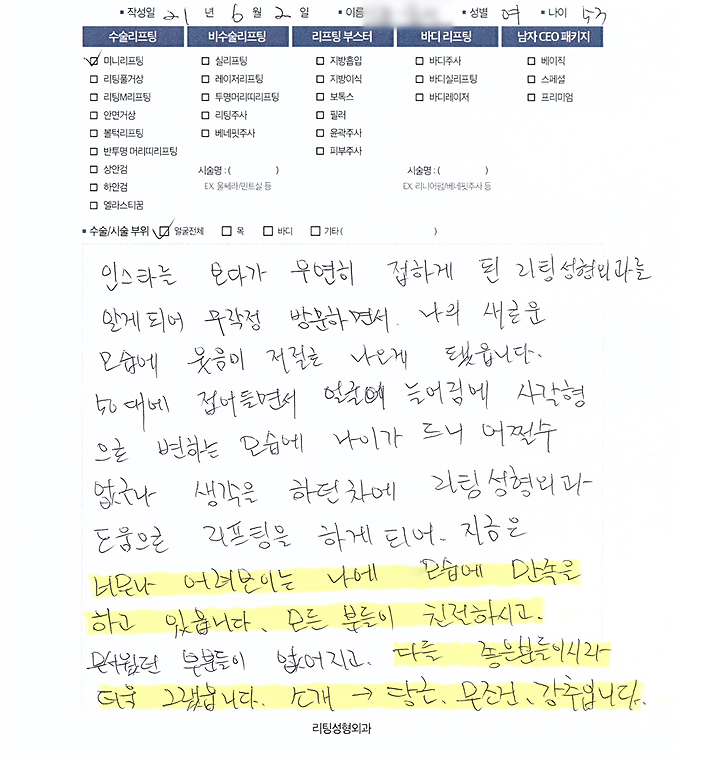 ▪ 작성일 21 년 6 월 2 일 ▪ 이름 ▪ 성별 여 ▪ 나이 53
수술리프팅 비수술리프팅 리프팅 부스터 바디 리프팅 남자 CEO 패키지
미니리프팅 실리프팅 지방흡입 바디주사 베이직
리팅풀거상 레이저리프팅 지방이식 바디실리프팅 스페셜
리팅M리프팅 투명머리띠리프팅 보톡스 바디레이저 프리미엄
안면거상 리팅주사 필러
볼턱리프팅 베네핏주사 윤곽주사
반투명 머리띠리프팅 피부주사
상안검 시술명 : ( ) 시술명 : ( )
하안검 EX. 울쎄라/민트실 등 EX. 리니어펌/베네핏주사 등
엘라스티꿈
▪ 수술/시술 부위 얼굴전체 목 바디 기타 ( )
인스타를 보다가 우연히 접하게 된 리팅성형외과를
알게되어 무작정 방문하면서. 나의 새로운
모습에 웃음이 저절로 나오게 됐읍니다.
50대에 접어들면서 얼굴에 늘어짐에 사각형
으로 변하는 모습에 나이가 드니 어쩔수
없구나 생각을 하던차에 리팅성형외과
도움으로 리프팅을 하게되어. 지금은
너무나 어려보이는 나에 모습에 만족을
하고 있읍니다. 모든 분들이 친절하시고.
무서웠던 부분들이 없어지고. 다들 좋은분들이시라
더욱 그랬읍니다. 소개 → 당근. 무조건. 강추입니다.
리팅성형외과